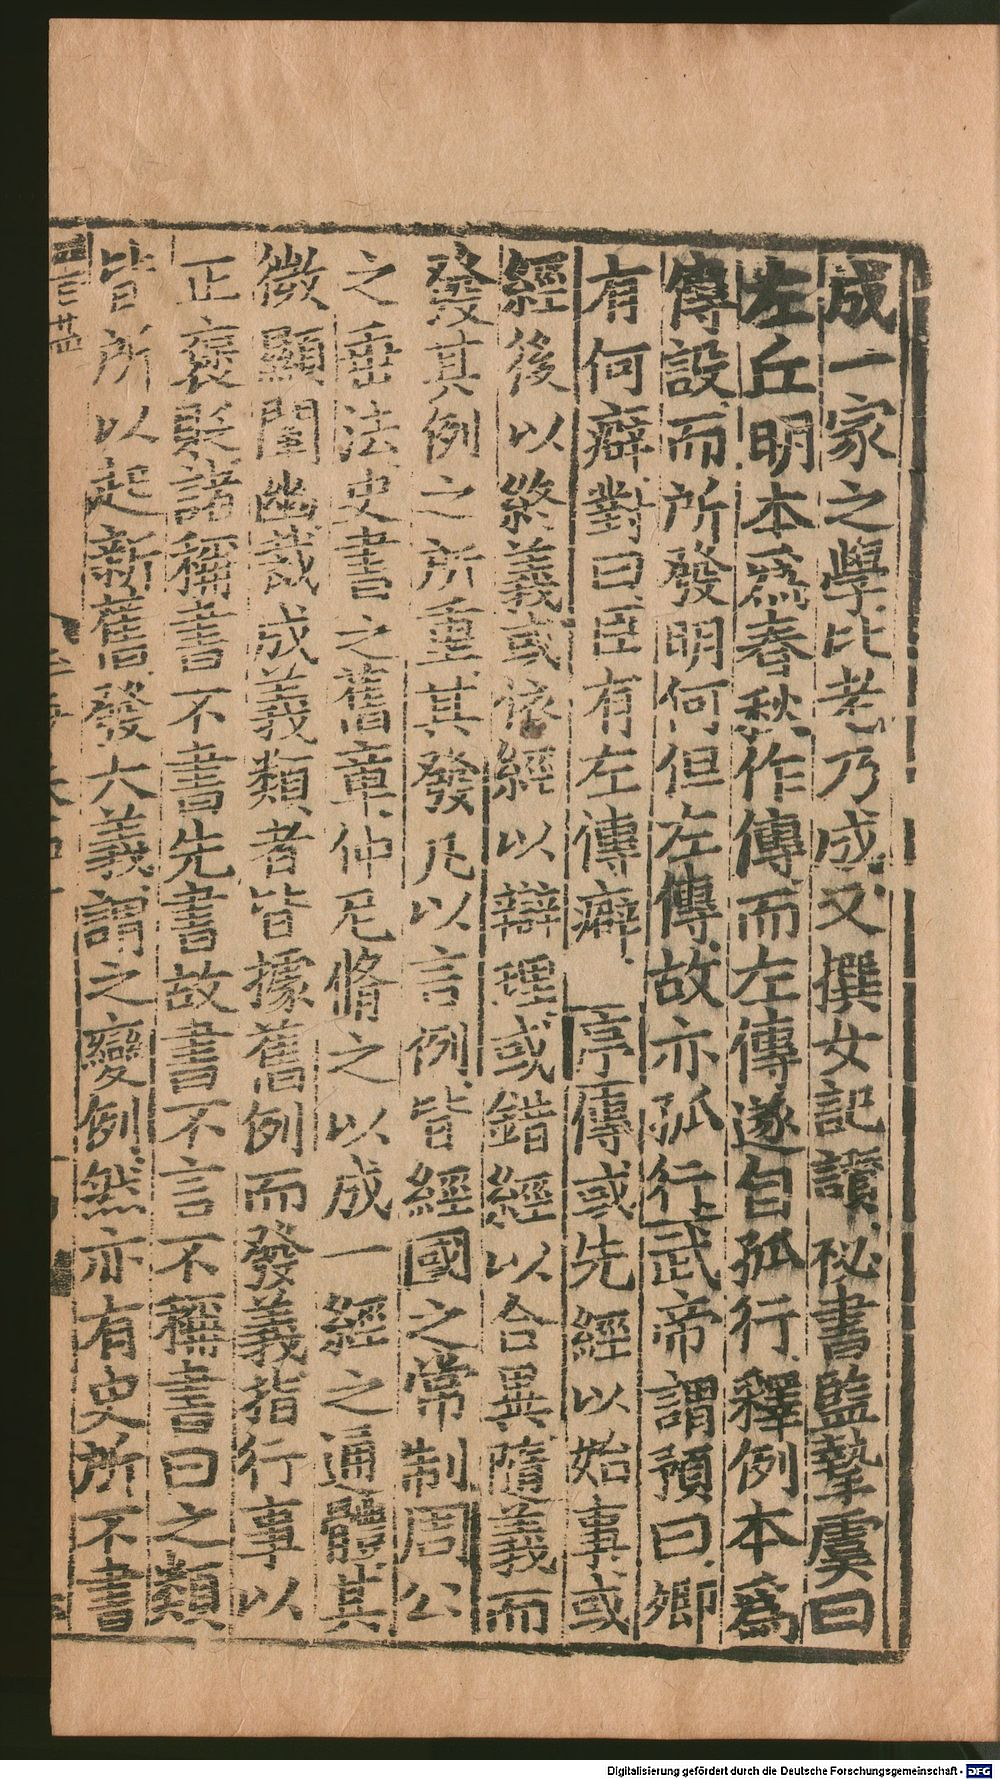 成一家之學比老乃成又撰女記讚秘書監摯虞曰
左丘明本爲春秋作傳而左傳遂自孤行釋例本爲
傳設而所發明何但左傳故亦孤行武帝謂預曰卿
有何癖對曰臣有左傳癖 序傳或先經以始事或
經後以終義或依經以辯理或錯經以合異隨義而
發其例之所重其發凡以言例皆經國之常制周公
之垂法史書之舊章仲尼脩之以成一經之通體其
微顯闡幽裁成義類者皆據舊例而發義指行事以
正褒貶諸稱書不書先書故書不言不稱書曰之類
皆所以起新舊發大義謂之變例然亦有史所不書
Digitalisierung gefördert durch die Deutsche Forschungsgemeinschaft - DFG